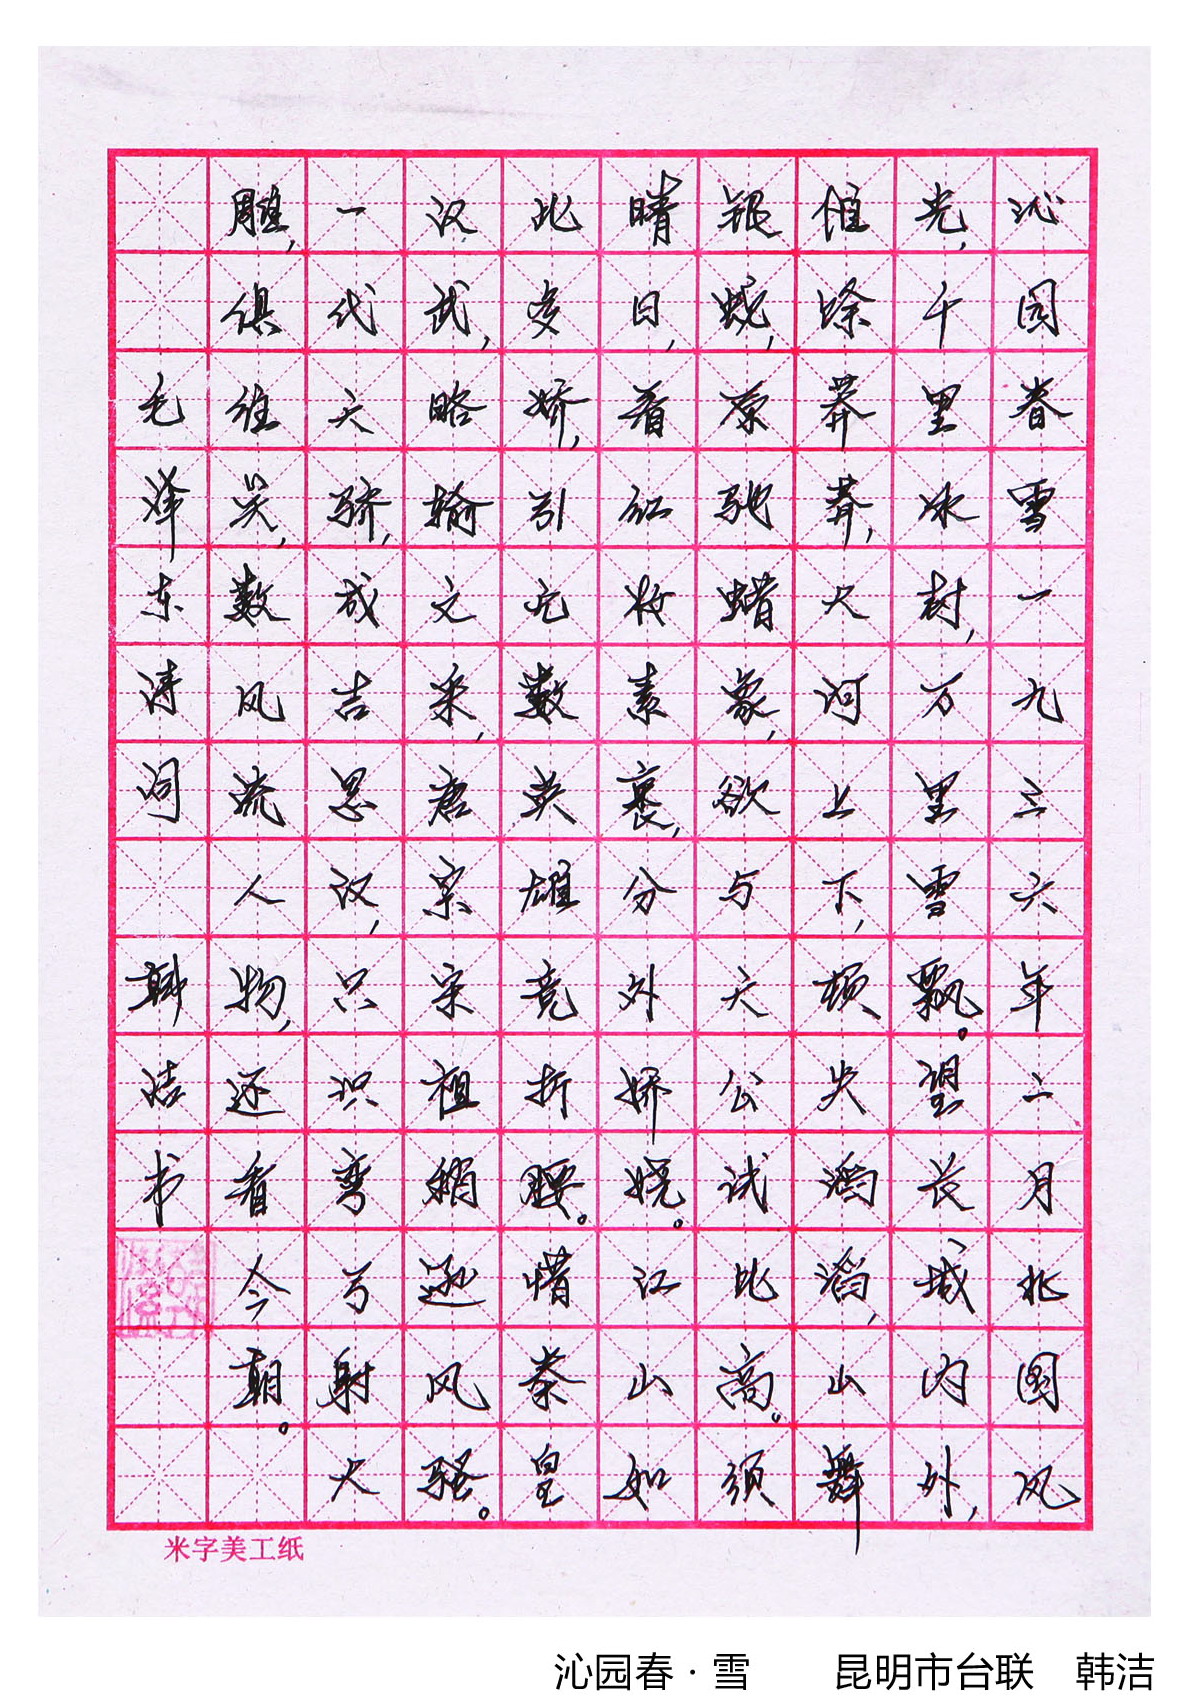 沁园春雪一九三六年二月北国风
光,千里冰封,万里雪飘。望长城内外,
惟馀莽莽,大河上下,顿失滔滔,山舞
银蛇,原驰蜡象,欲与天公试比高。须
晴日,看红妆素裹,分外娇娆。江山如
此多娇,引无数英雄竞折腰。惜秦皇
汉武,略输文采,唐宗宋祖稍逊风骚。
一代天骄,成吉思汉,只识弯弓射大
雕,俱往矣,数风流人物,还看今朝。
毛泽东诗词 韩洁书
米字美工纸
沁园春·雪 昆明市台联 韩洁